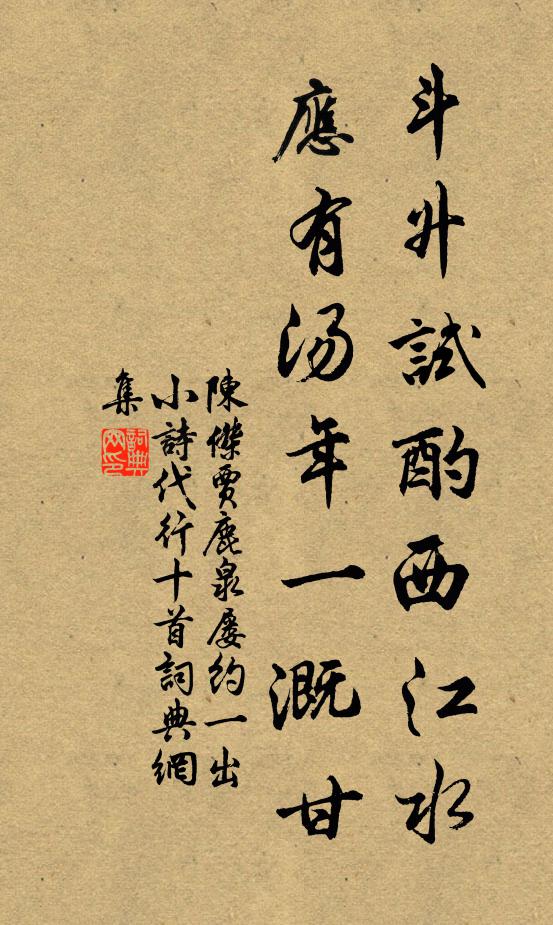 斗升試酌西江水
應有汤年一溉甘
陳傑賈鹿泉屢約一出
小詩代行十首詞典網
集
詞典
网印